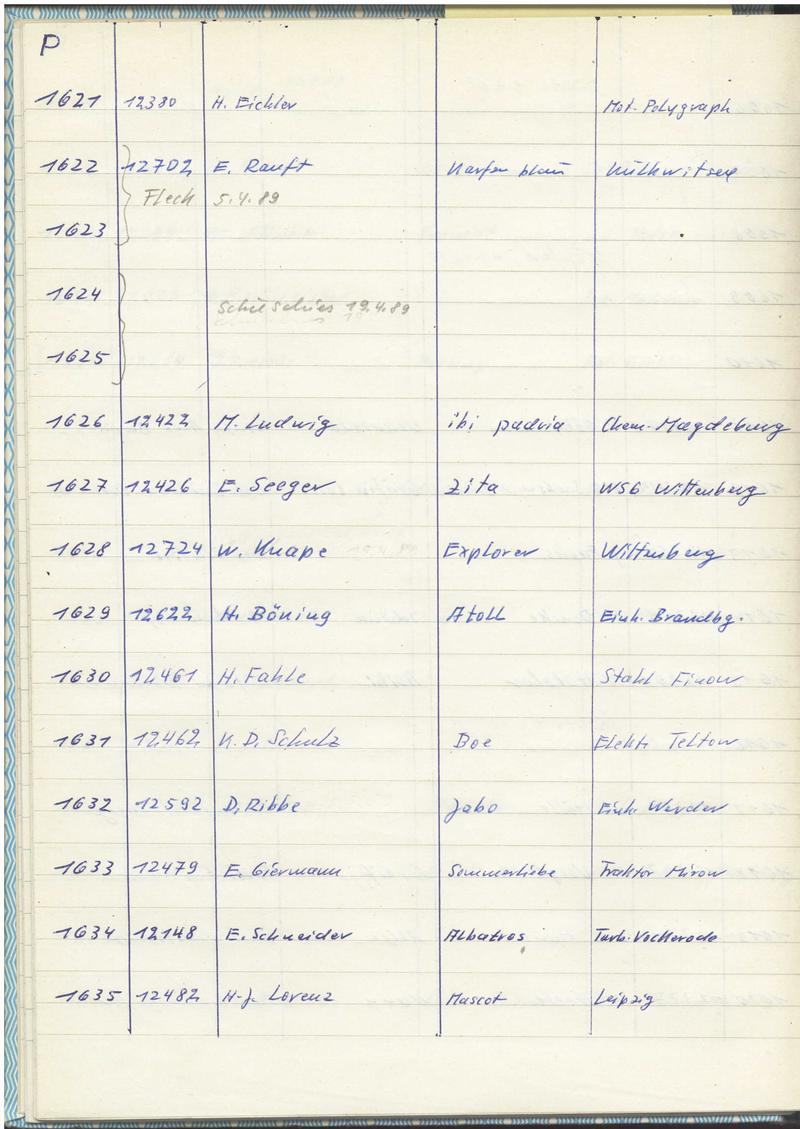 P
1621 12380 H. Eichler Mot. Polygraph
1622 12702 E. Rauft blau
Fleck 5.4.89
1623
1624
19.4.89
1625
1626 12422 M. Ludwig ibi padria Chem. Magdeburg
1627 12426 E. Seeger Zita WSG Wittenberg
1628 12724 W. Knape Explorer Wittenberg
1629 12622 H. Böning Atoll Einh. Brandbg.
1630 12461 H. Fahle Stahl Finow
1631 12462 K. D. Schulz Boe Elektr. Teltow
1632 12592 D. Ribbe Jabo Einh. Werder
1633 12479 E. Giermann Sommerliebe Traktor Mirow
1634 12148 E. Schneider Albatros Turb. Vockerode
1635 12482 H-J. Lorenz Mascot Leipzig